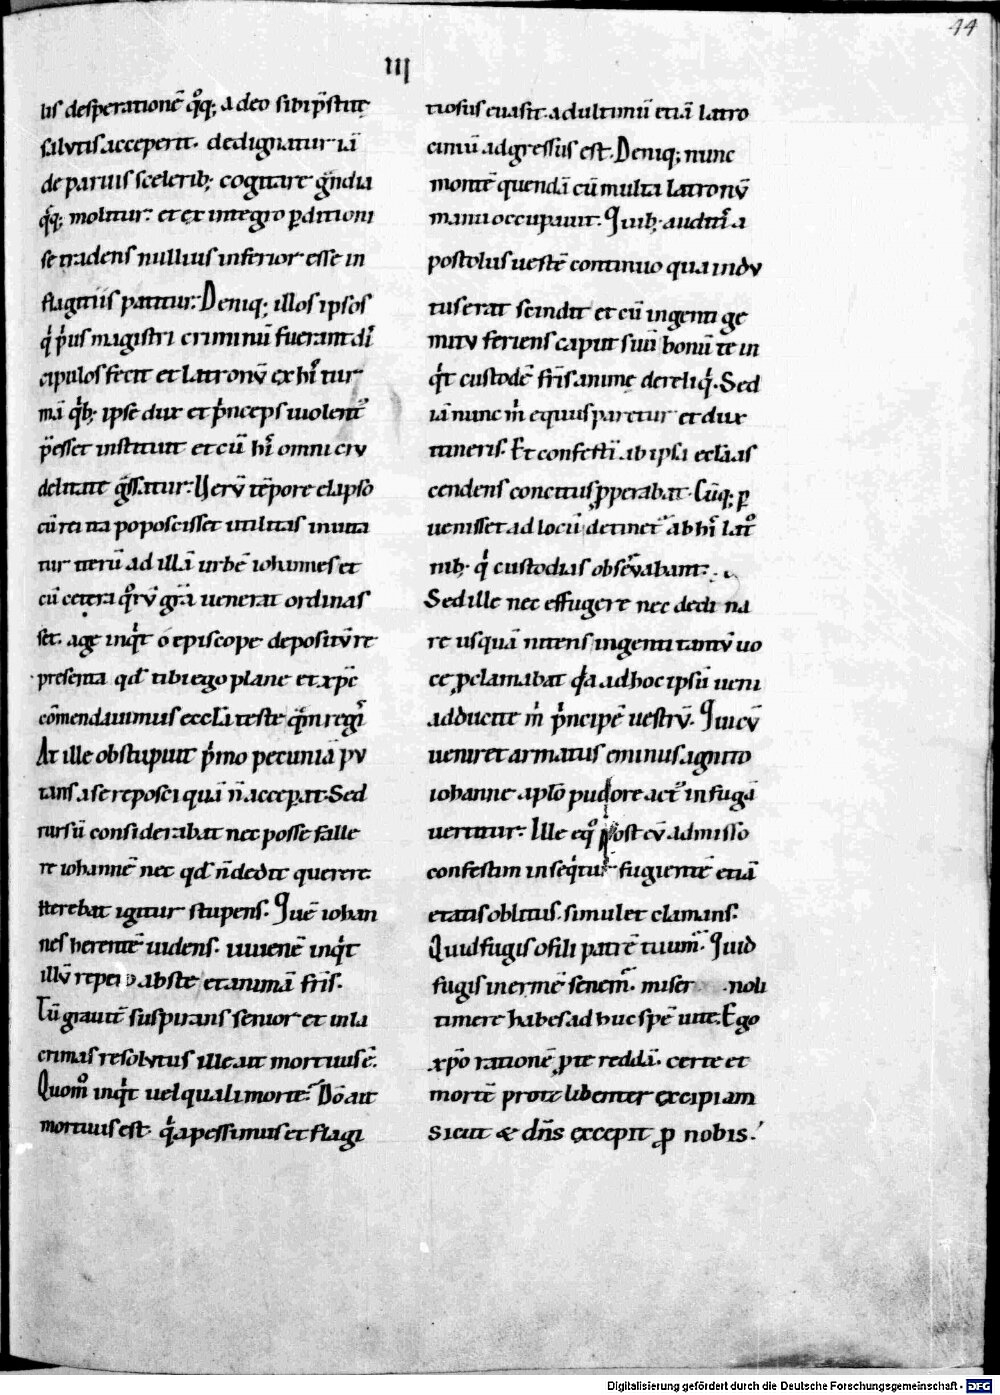 44
III
lis desperationē qͦq; adeo sibi p̄stite
salutis acceperit. dedignatur iā
de paruis scelerib; cogitare gͣndia
qͣq; molitur. et ex integro ꝑditioni
se tradens nullius inferior esse in
flagitiis patitur. Deniq; illos ipsos
qͥ pͥus magistri criminū fuerant di
scipulos fecit et latronū ex hiͥ tur
mā qͥb; ipse dux et pͥnceps uiolent᷑
p̄esset instituit et cū hiͥ omni cru
delitate gͣssatur. Uerū tēpore elapso
cū rei ita poposcisset utilitas inuita
tur iterū ad illā urbē iohannes et
cū cetera qͦrū grā uenerat ordinas
set. age inqͥt o episcope depositū re
presenta qd tibi ego plane et xp̄c
cōmendauimus eccl̄i teste qͣm regiͥ
At ille obstupuit pͥmo pecuniā pu
tans a se reposci quā n̄ acceꝑat. Sed
rursū considerabat nec posse falle
re iohannē nec qd n̄ dedit querere.
Herebat igitur stupens. Quē iohan
nes herentē uidens. iuuenē inqͥt
illū repeto abs te et animā fr̄is.
Tū grauit̄ suspirans senior et in la
crimas resolutus ille ait mortuus ē.
Quomͦ inqͥt uel quali morte. Dō ait
mortuus est. qͥa pessimus et flagi
tiosus euasit. ad ultimū etiā latro
ciniū adgressus est. Deniq; nunc
montē quendā cū multa latronū
manu occupauit. Quib; auditiͥ a
postolus uestē continuo qua indu
tus erat scindit et cū ingenti ge
mitu feriens caput suū bonū te in
qͥt custodē fr̄is animę dereliqͥ. Sed
iā nunc mͥ equus paretur et dux
itineris. Et confestī ab ipsa eccl̄ia as
cendens concitus ꝓperabat. Cūq; ꝑ
uenisset ad locū detinet᷑ ab hiͥ latͦ
nib; qͥ custodias obseruabant.
Sed ille nec effugere nec decli na
re usquā nitens ingenti tantū uo
ce ꝓclamabat qͥa ad hoc ipsū ueni
adducite mͥ pͥncipē uestrū. Qui cū
ueniret armatus eminus agnito
iohanne apl̄o pudore act᷑ in fugā
uertitur. Ille eqͦ post eū admisso
confestim inseqͥtur fugientē etiā
etatis oblitus. simul et clamans.
Quid fugis o fili patrē tuum. Quid
fugis inermē senem. miser noli
timere habes adhuc spē uite. Ego
xp̄o rationē ꝓ te reddā. certe et
mortē pro te libenter excipiam
sicut & dn̄s excepit ꝓ nobis.
Digitalisierung gefördert durch die Deutsche Forschungsgemeinschaft - DFG